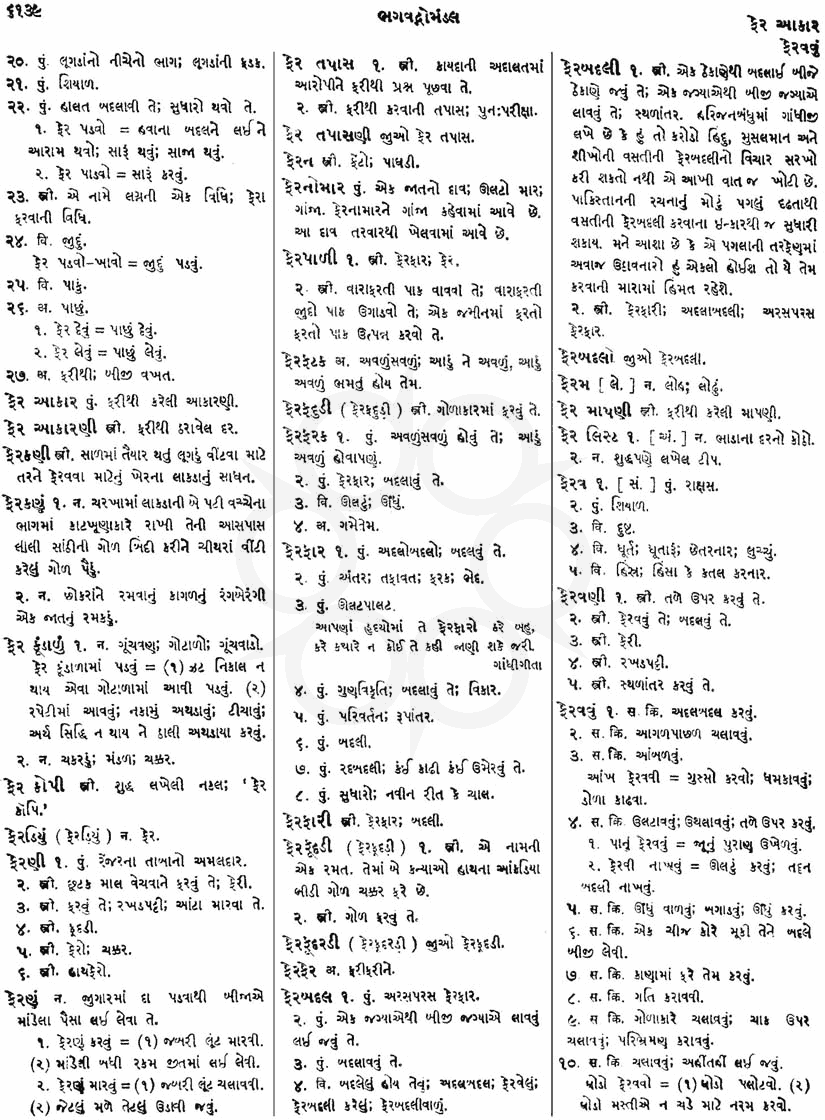 ૬૧૩૯
ભગવદ્ગોમંડલ
ફેર આકાર
ફેરવવું
૨૦. પું. લૂગડાંનો નીચેનો ભાગ; લૂગડાંની કડક.
૨૧. પું. શિયાળ.
૨૨. પું. હાલત બદલાવી તે; સુધારો થવો તે.
૧. ફેર પડવો = હવાના બદલને લઈ ને
આરામ થવો; સારૂં થવું; સાજા થવું.
૨. ફેર પાડવો = સારૂં કરવું.
૨૩. સ્ત્રી. એ નામે લગ્નની એક વિધિ; ફેરા
ફરવાની વિધિ.
૨૪. વિ. જુદું.
ફેર પડવો-ખાવો = જુદું પડવું.
૨૫. વિ. પાકું.
૨૬. અ. પાછું.
૧. ફેર દેવું = પાછું દેવું.
૨. ફેર લેવું = પાછું લેવું.
૨૭. અ. ફરીથી; બીજી વખત.
ફેર આકાર પું. ફરીથી કરેલી આકારણી.
ફેર આકારણી સ્ત્રી. ફરીથી ઠરાવેલ દર.
ફેરકણી સ્ત્રી. સાળમાં તૈયાર થતું લૂગડું વીંટવા માટે
તરને ફેરવવા માટેનું ખેરના લાકડાનું સાધન.
ફેરકણું ૧. ન. ચરખામાં લાકડાની બે પટી વચ્ચેના
ભાગમાં કાટખૂણાકારે રાખી તેની આસપાસ
લીલી સાંઠીની ગોળ ત્રિદી કરીને ચીથરાં વીંટી
કરેલું ગોળ પૈડું.
૨. ન. છોકરાંને રમવાનું કાગળનું રંગબેરંગી
એક જાતનું રમકડું.
ફેર કૂંડાળું ૧. ન. ગૂંચવણ; ગોટાળો; ગૂંચવાડો.
ફેર કૂંડાળામાં પડવું = (૧) ઝટ નિકાલ ન
થાય એવા ગોટાળામાં આવી પડવું. (૨)
રપેટીમાં આવવું; નકામું અથડાવું; ટીચાવું;
અર્થ સિદ્ધિ ન થાય ને ઠાલી અથડાયા કરવું.
૨. ન. ચકરડું; મંડળ; ચક્કર.
ફેર કોપી સ્ત્રી. શુદ્ધ લખેલી નકલ; ‘ફેર
કૉપિ.’
ફેરડિયું ( ફેરડિયું ) ન. ફેર.
ફેરણી ૧. પું. રેંજરના તાબાનો અમલદાર.
૨. સ્ત્રી. છૂટક માલ વેચવાને ફરવું તે; ફેરી.
૩. સ્ત્રી. ફરવું તે; રખડપટ્ટી; આંટા મારવા તે.
૪. સ્ત્રી. ફૂદડી.
૫. સ્ત્રી. ફેરો; ચક્કર.
૬. સ્ત્રી. હાથફેરો.
ફેરણું ન. જુગારમાં દા પડવાથી બીજાએ
માંડેલા પૈસા લઈ લેવા તે.
૧. ફેરણું કરવું = (૧) જબરી લૂંટ મારવી.
(૨) માંડેલી બધી રકમ જીતમાં લઈ લેવી.
૨. ફેરણું મારવું = (૧) જબરી લૂંટ ચલાવવી.
(૨) જેટલું મળે તેટલું ઉડાવી જવું.
ફેર તપાસ ૧. સ્ત્રી. કાયદાની અદાલતમાં
આરોપીને ફરીથી પ્રશ્ન પૂછવા તે.
૨. સ્ત્રી. ફરીથી કરવાની તપાસ; પુનઃપરીક્ષા.
ફેર તપાસણી જુઓ ફેર તપાસ.
ફેરન સ્ત્રી. ફેંટો; પાઘડી.
ફેરનોમાર પું. એક જાતનો દાવ; ઊલટો માર;
ગાંજા. ફેરનામારને ગાંજા કહેવામાં આવે છે.
આ દાવ તરવારથી ખેલવામાં આવે છે.
ફેરપાળી ૧. સ્ત્રી. ફેરફાર; ફેર.
૨. સ્ત્રી. વારાફરતી પાક વાવવા તે; વારાફરતી
જુદો પાક ઉગાડવો તે; એક જમીનમાં ફરતો
ફરતો પાક ઉત્પન્ન કરવો તે.
ફેરફટક અ. અવળુંસવળું; આડું ને અવળું, આડું
અવળું ભમતું હોય તેમ.
ફેરફુદડી ( ફેરફુદડી ) સ્ત્રી. ગોળાકારમાં ફરવું તે.
ફેરફરક ૧. પું. અવળુંસવળું હોવું તે; આડું
અવળું હોવાપણું.
૨. પું. ફેરફાર; બદલાવું તે.
૩. વિ. ઊલટું; ઊંધું.
૪. અ. ગમેતેમ.
ફેરફાર ૧. પું. અદલોબદલો; બદલવું તે.
૨. પું. અંતર; તફાવત; ફરક; ભેદ.
૩. પું. ઊલટપાલટ.
આપણાં હૃદયોમાં તે ફેરફારો કરે બહુ,
કરે કયારે ન કોઈ તે કહી જાણી શકે જરી.
ગાંધીગીતા
૪. પું. ગુણવિકૃતિ; બદલાવું તે; વિકાર.
૫. પું. પરિવર્તન; રૂપાંતર.
૬. પું. બદલી.
૭. પું. રદબદલી; કંઈ કાઢી કંઈ ઉમેરવું તે.
૮. પું. સુધારો; નવીન રીત કે ચાલ.
ફેરફારી સ્ત્રી. ફેરફાર; બદલી.
ફેરફૂદડી ( ફેરફૂદડી ) ૧. સ્ત્રી. એ નામની
એક રમત. તેમાં બે કન્યાઓ હાથના આંકડિયા
ભીડી ગોળ ચક્કર ફરે છે.
૨. સ્ત્રી. ગોળ ફરવું તે.
ફેરફૂદરડી ( ફેરફૂદરડી ) જુઓ ફેરફૂદડી.
ફેરફેર અ. ફરીફરીને.
ફેરબદલ ૧. પું. અરસપરસ ફેરફાર.
૨. પું. એક જગ્યાએથી બીજી જગ્યાએ લાવવું
લઈ જવું તે.
૩. પું. બદલાવવું તે.
૪. વિ. બદલેલું હોય તેવું; અદલબદલ; ફેરવેલું;
ફેરબદલી કરેલું; ફેરબદલીવાળું.
ફેરબદલી ૧. સ્ત્રી. એક ઠેકાણેથી બદલાઈ બીજે
ઠેકાણે જવું તે; એક જગ્યાએથી બીજી જગ્યાએ
લાવવું તે; સ્થળાંતર. હરિજનબંધુમાં ગાંધીજી
લખે છે કે હું તો કરોડો હિંદુ, મુસલમાન અને
શીખોની વસતીની ફેરબદલીનો વિચાર સરખો
કરી શકતો નથી એ આખી વાત જ ખોટી છે.
પાકિસ્તાનની રચનાનું મોટું પગલું દૃઢતાથી
વસતીની ફેરબદલી કરવાના ઇન્કારથી જ સુધારી
શકાય. મને આશા છે કે એ પગલાની તરફેણમાં
અવાજ ઉઠાવનારો હું એકલો હોઈશ તો યે તેમ
કરવાની મારામાં હિંમત રહેશે.
૨. સ્ત્રી. ફેરફારી; અદલાબદલી; અરસપરસ
ફેરફાર.
ફેરબદલો જુઓ ફેરબદલી.
ફેરમ [ લે. ] ન. લોહ; લોઢું.
ફેર માપણી સ્ત્રી. ફરીથી કરેલી માપણી.
ફેર લિસ્ટ ૧. [ અં. ] ન. ભાડાના દરનો કોઠો.
૨. ન. શુદ્ધપણે લખેલ ટીપ.
ફેરવ ૧. [ સં. ] પું. રાક્ષસ.
૨. પું. શિયાળ.
૩. વિ. દુષ્ટ.
૪. વિ. ધૂર્ત; ધૂતારૂં; છેતરનાર; લુચ્ચું.
૫. વિ. હિંસ્ર; હિંસા કે કતલ કરનાર.
ફેરવણી ૧. સ્ત્રી. તળે ઉપર કરવું તે.
૨. સ્ત્રી. ફેરવવું તે; બદલવું તે.
૩. સ્ત્રી. ફેરી.
૪. સ્ત્રી. રખડપટ્ટી.
૫. સ્ત્રી. સ્થળાંતર કરવું તે.
ફેરવવું ૧. સ. ક્રિ. અદલબદલ કરવું.
૨. સ. ક્રિ. આગળપાછળ ચલાવવું.
૩. સ. ક્રિ. આંબળવું.
આંખ ફેરવવી = ગુસ્સો કરવો; ધમકાવવું;
ડોળા કાઢવા.
૪. સ. ક્રિ. ઉલટાવવું; ઉથલાવવું; તળે ઉપર કરવું.
૧. પાનું ફેરવવું = જૂનું પુરાણું ઉખેળવું.
૨. ફેરવી નાખવું = ઊલટું કરવું; તદ્દન
બદલી નાખવું.
૫. સ. ક્રિ. ઊંધું વાળવું; બગાડવું; ઊંધું કરવું.
૬. સ. ક્રિ. એક ચીજ કોરે મૂકી તેને બદલે
બીજી લેવી.
૭. સ. ક્રિ. કાણામાં ફરે તેમ કરવું.
૮. સ. ક્રિ. ગતિ કરાવવી.
૯. સ. ક્રિ. ગોળાકારે ચલાવવું; ચાક ઉપર
ચલાવવું; પરિભ્રમણ કરાવવું.
૧૦. સ. ક્રિ ચલાવવું; અહીંતહીં લઈ જવું.
ઘોડો ફેરવવો = (૧) ઘોડો પલોટવો. (૨)
ઘોડો મસ્તીએ ન ચડે માટે નરમ કરવો.